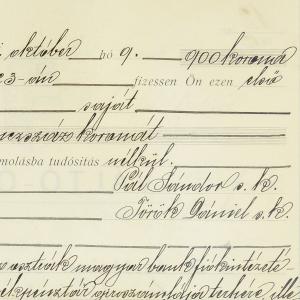 október hó 9. 900 korona
3-án fizessen Ön ezen első
saját
koronát
molásba tudósitás nélkül.
Pál Sándor s. k.
Török Dániel s. k.
osztrák magyar bank fiókintézeté-